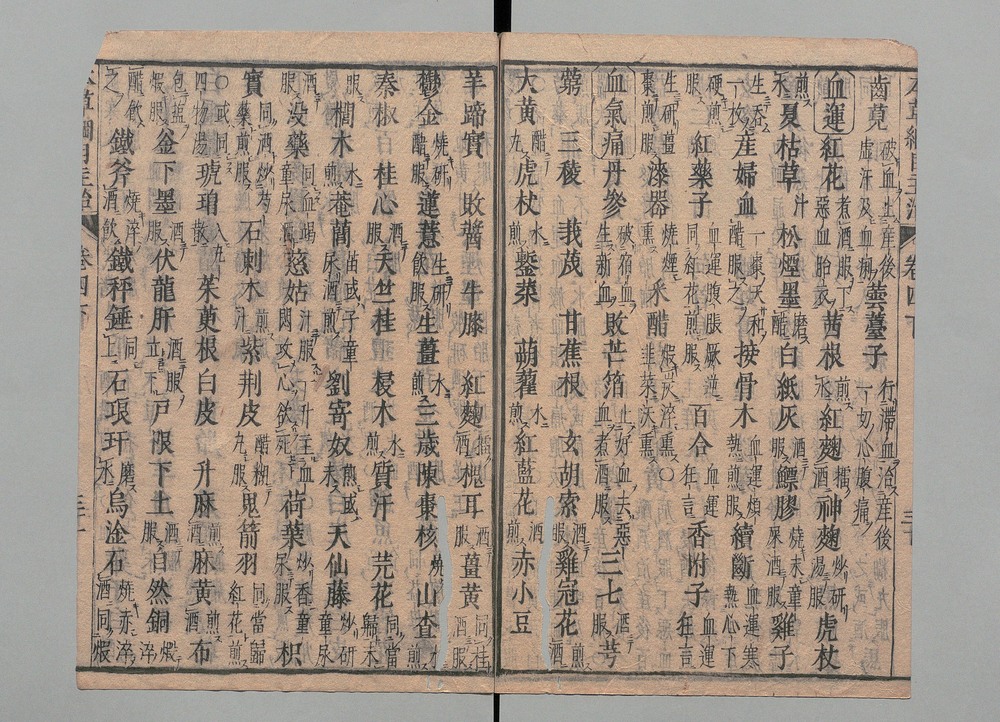 本草綱目主治 卷四下 三十
齒莧 破血止産後虛汗及血痢 蕓薹子 行滯血治産後一切心腹痛
血運 紅花 煮酒服下惡血胎衣 茜根 煎水 紅麴 擂酒 神麴 炒研湯服 虎杖
煎水 夏枯草 汁 松煙墨 磨醋 白紙灰 酒服 鰾膠 燒末童尿酒服 雞子
生吞一枚 産婦血 一棗大和醋服之 接骨木 血運煩熱煎服 續斷 血運寒熱心下
硬煎服 紅藥子 血運腹脹厥逆同紅花煎服 百合 血運狂言 香附子 血運狂言
生研薑棗煎服 漆器 燒煙熏 米醋 煅炭淬熏 韭菜沃熏
血氣痛 丹參 破宿血生新血 敗芒箔 止好血去惡血煮酒服 三七 酒服 芎
藭 三稜 莪茂 甘蕉根 玄胡索 酒服 雞冠花 酒
大黄 醋丸 虎杖 水煎 鏨菜 蒴藋 水煎 紅藍花 酒煎 赤小豆
羊蹄實 敗醬 牛膝 紅麴 擂酒 槐耳 酒服 薑黄 同桂酒服
鬱金 燒研醋服 蓮薏 生研飲服 生薑 水煎 三歲陳棗核 燒 山查 水
秦椒 桂心 酒服 天竺桂 㮈木 水煎 質汗 芫花 同當歸末
服 櫚木 水煎 菴䕡 苗或子童尿酒煎 劉寄奴 煎或末 天仙藤 炒研童尿
酒服 没藥 同血竭童尿酒服 慈姑 汁服一升主血悶攻心欲死 荷葉 炒香童尿服 枳
實 同酒炒芍藥煎服 石刺木 煎汁 紫荆皮 醋糊丸服 鬼箭羽 同當歸紅花煎
○或同四物湯 琥珀 入丸散 茱萸根白皮 升麻 酒煎 麻黄 煎酒 布
包盐煅服 釜下墨 酒服 伏龍肝 酒服立下 户限下土 酒服 自然銅 煅淬
醋飲之 鐵斧 燒淬酒飲 鐵秤錘 同上 石琅玕 磨水 烏淦石 燒赤淬酒同煅
本草綱目主治 卷四下 三十